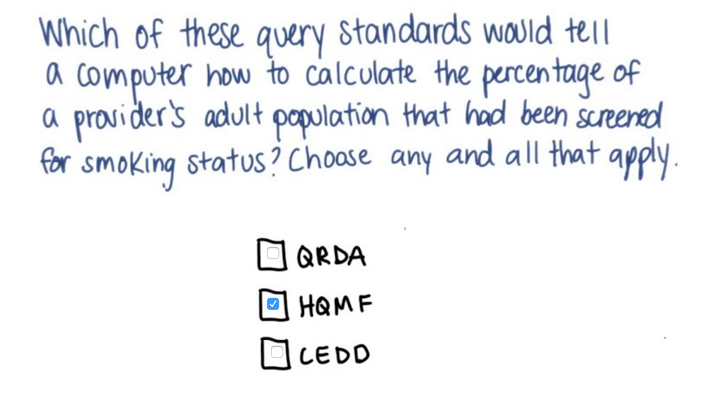 Which of these query standards would tell
a computer how to calculate the percentage of
a provider's adult population that had been screened
for smoking status? Choose any and all that apply.
QRDA
HQMF
CEDD